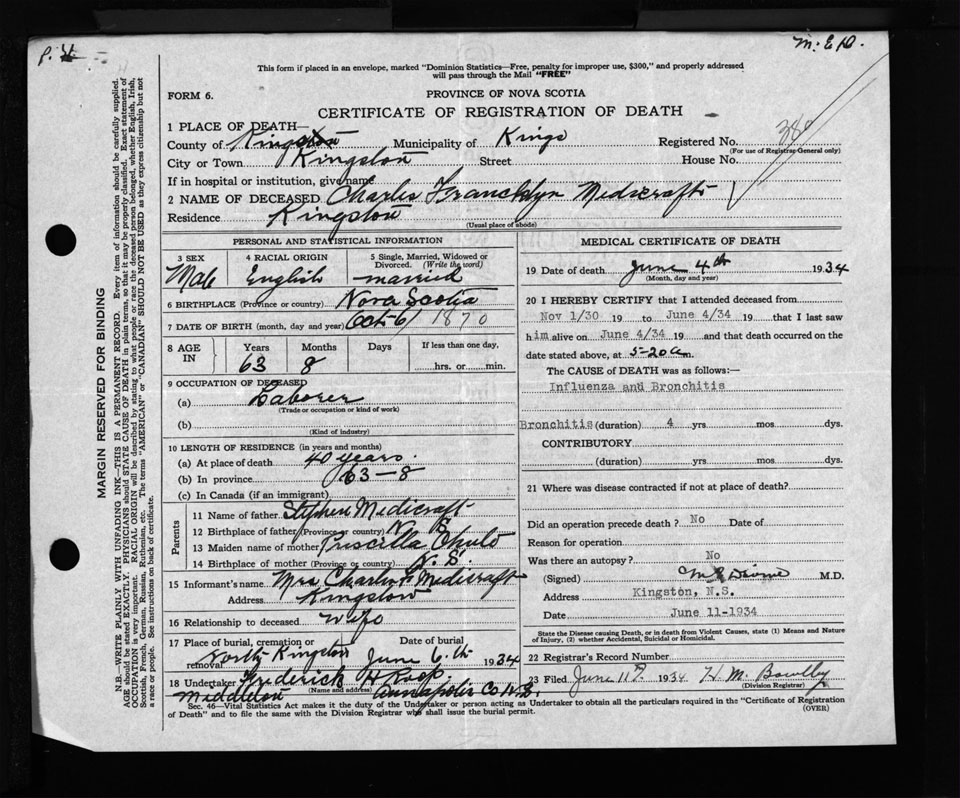 M. E. D.
This form if placed in an envelope, marked "Dominion Statistics—Free, penalty for improper use, $300," and properly addressed
will pass through the Mail "FREE"
FORM 6.
PROVINCE OF NOVA SCOTIA
CERTIFICATE OF REGISTRATION OF DEATH
1 PLACE OF DEATH—
County of Kings Municipality of Kings Registered No. 380
(For use of Registrar General only)
City or Town Kingston Street House No.
If in hospital or institution, give name
2 NAME OF DECEASED Charles Francklyn Medicraft
Residence Kingston
(Usual place of abode)
PERSONAL AND STATISTICAL INFORMATION
3 SEX 4 RACIAL ORIGIN 5 Single, Married, Widowed or
Divorced. (Write the word)
Male English married
6 BIRTHPLACE (Province or country) Nova Scotia
7 DATE OF BIRTH (month, day and year) Oct-6/1870
8 AGE IN Years Months Days If less than one day,
63 8 hrs. or min.
9 OCCUPATION OF DECEASED
(a) Laborer
(Trade or occupation or kind of work)
(b)
(Kind of industry)
10 LENGTH OF RESIDENCE (in years and months)
(a) At place of death 40 years.
(b) In province 63-8
(c) In Canada (if an immigrant)
Parents
11 Name of father Stephen Medicraft
12 Birthplace of father (Province or country) N. S
13 Maiden name of mother Priscilla
14 Birthplace of mother (Province or country) N. S.
15 Informant's name Mrs Charles F Medicraft
Address Kingston
16 Relationship to deceased wife
17 Place of burial, cremation or removal Date of burial
North Kingston June 6th 1934
18 Undertaker Frederick H Roop.
(Name and address)
Middleton Annapolis Co N.S.
MEDICAL CERTIFICATE OF DEATH
19 Date of death June 4th 1934
(Month, day and year)
20 I HEREBY CERTIFY that I attended deceased from
Nov 1/30 19 to June 4/34 19 that I last saw
him alive on June 4/34 19 and that death occurred on the
date stated above, at 5-20 a m.
The CAUSE OF DEATH was as follows:—
Influenza and Bronchitis
Bronchitis (duration) 4 yrs mos. dys.
CONTRIBUTORY
(duration) yrs mos. dys.
21 Where was disease contracted if not at place of death?
Did an operation precede death? No Date of
Reason for operation
Was there an autopsy? No
(Signed) M.D.
Address Kingston, N.S.
Date June 11-1934
State the Disease causing Death, or in death from Violent Causes, state (1) Means and Nature
of Injury, (2) whether Accidental, Suicidal or Homicidal.
22 Registrar's Record Number
23 Filed June 11 1934 H. M. Bowlby
(Division Registrar)
Sec. 46—Vital Statistics Act makes it the duty of the Undertaker or person acting as Undertaker to obtain all the particulars required in the "Certificate of Registration
of Death" and to file the same with the Division Registrar who shall issue the burial permit.
(OVER)
MARGIN RESERVED FOR BINDING
N.B.—WRITE PLAINLY WITH UNFADING INK—THIS IS A PERMANENT RECORD. Every item of information should be carefully supplied.
AGE should be stated EXACTLY. PHYSICIANS should STATE CAUSE OF DEATH in plain terms, so that it may be properly classified. Exact statement of
OCCUPATION is very important. RACIAL ORIGIN will be described by stating to what people or race the deceased person belonged, whether English, Irish,
Scottish, French, German, Russian, Ruthenian, etc. The terms "AMERICAN" or "CANADIAN" SHOULD NOT BE USED as they express citizenship but not
a race or people. See instructions on back of certificate.